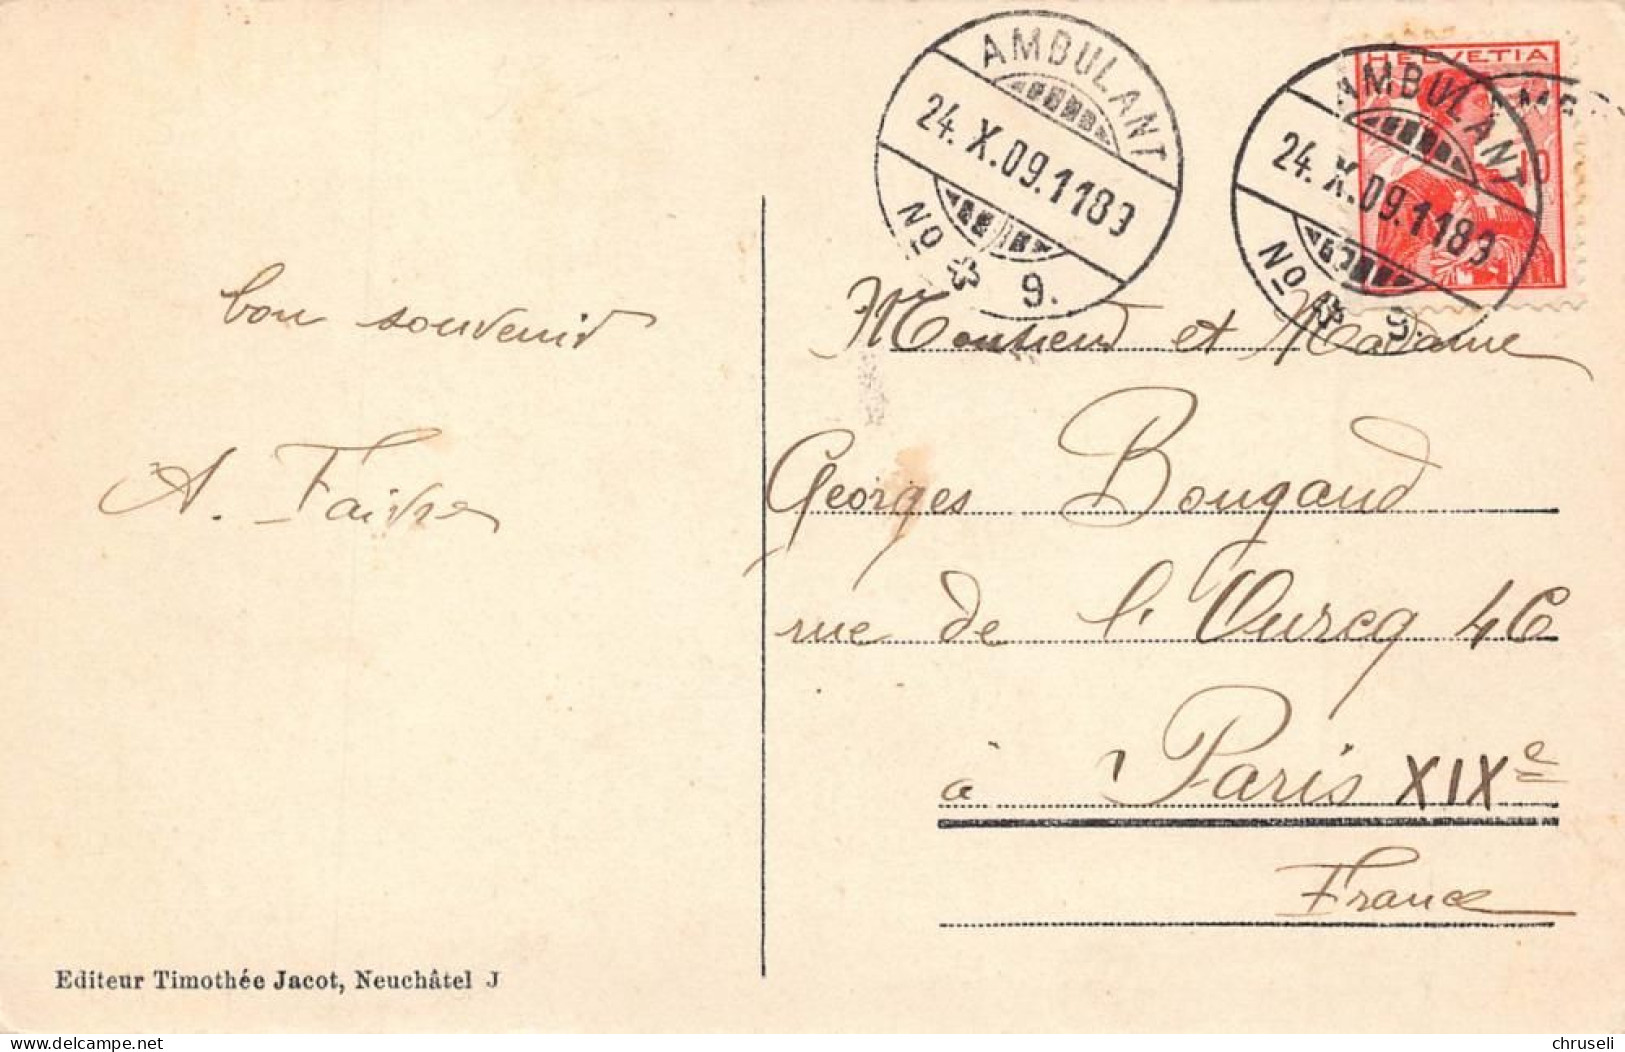 AMBULANT
24. X. 09. 1189
No 9.
HELVETIA
10
AMBULANT
24. X. 09. 1189
No 9.
bon souvenir
A. Faivre
Monsieur et Madame
Georges Bougaud
rue de l'Ourcq 46
à Paris XIXe
France
Editeur Timothée Jacot, Neuchâtel J
delcampe.net
chruseli